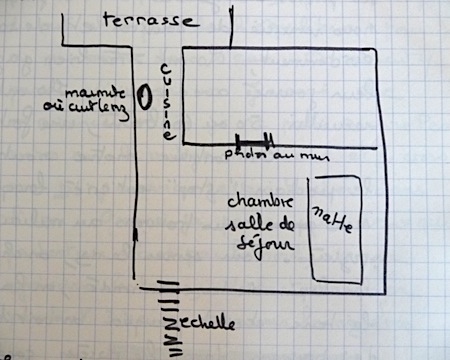 terrasse
cuisine
marmite
où cuit lenz
photos au mur
chambre
salle de
séjour
natte
echelle